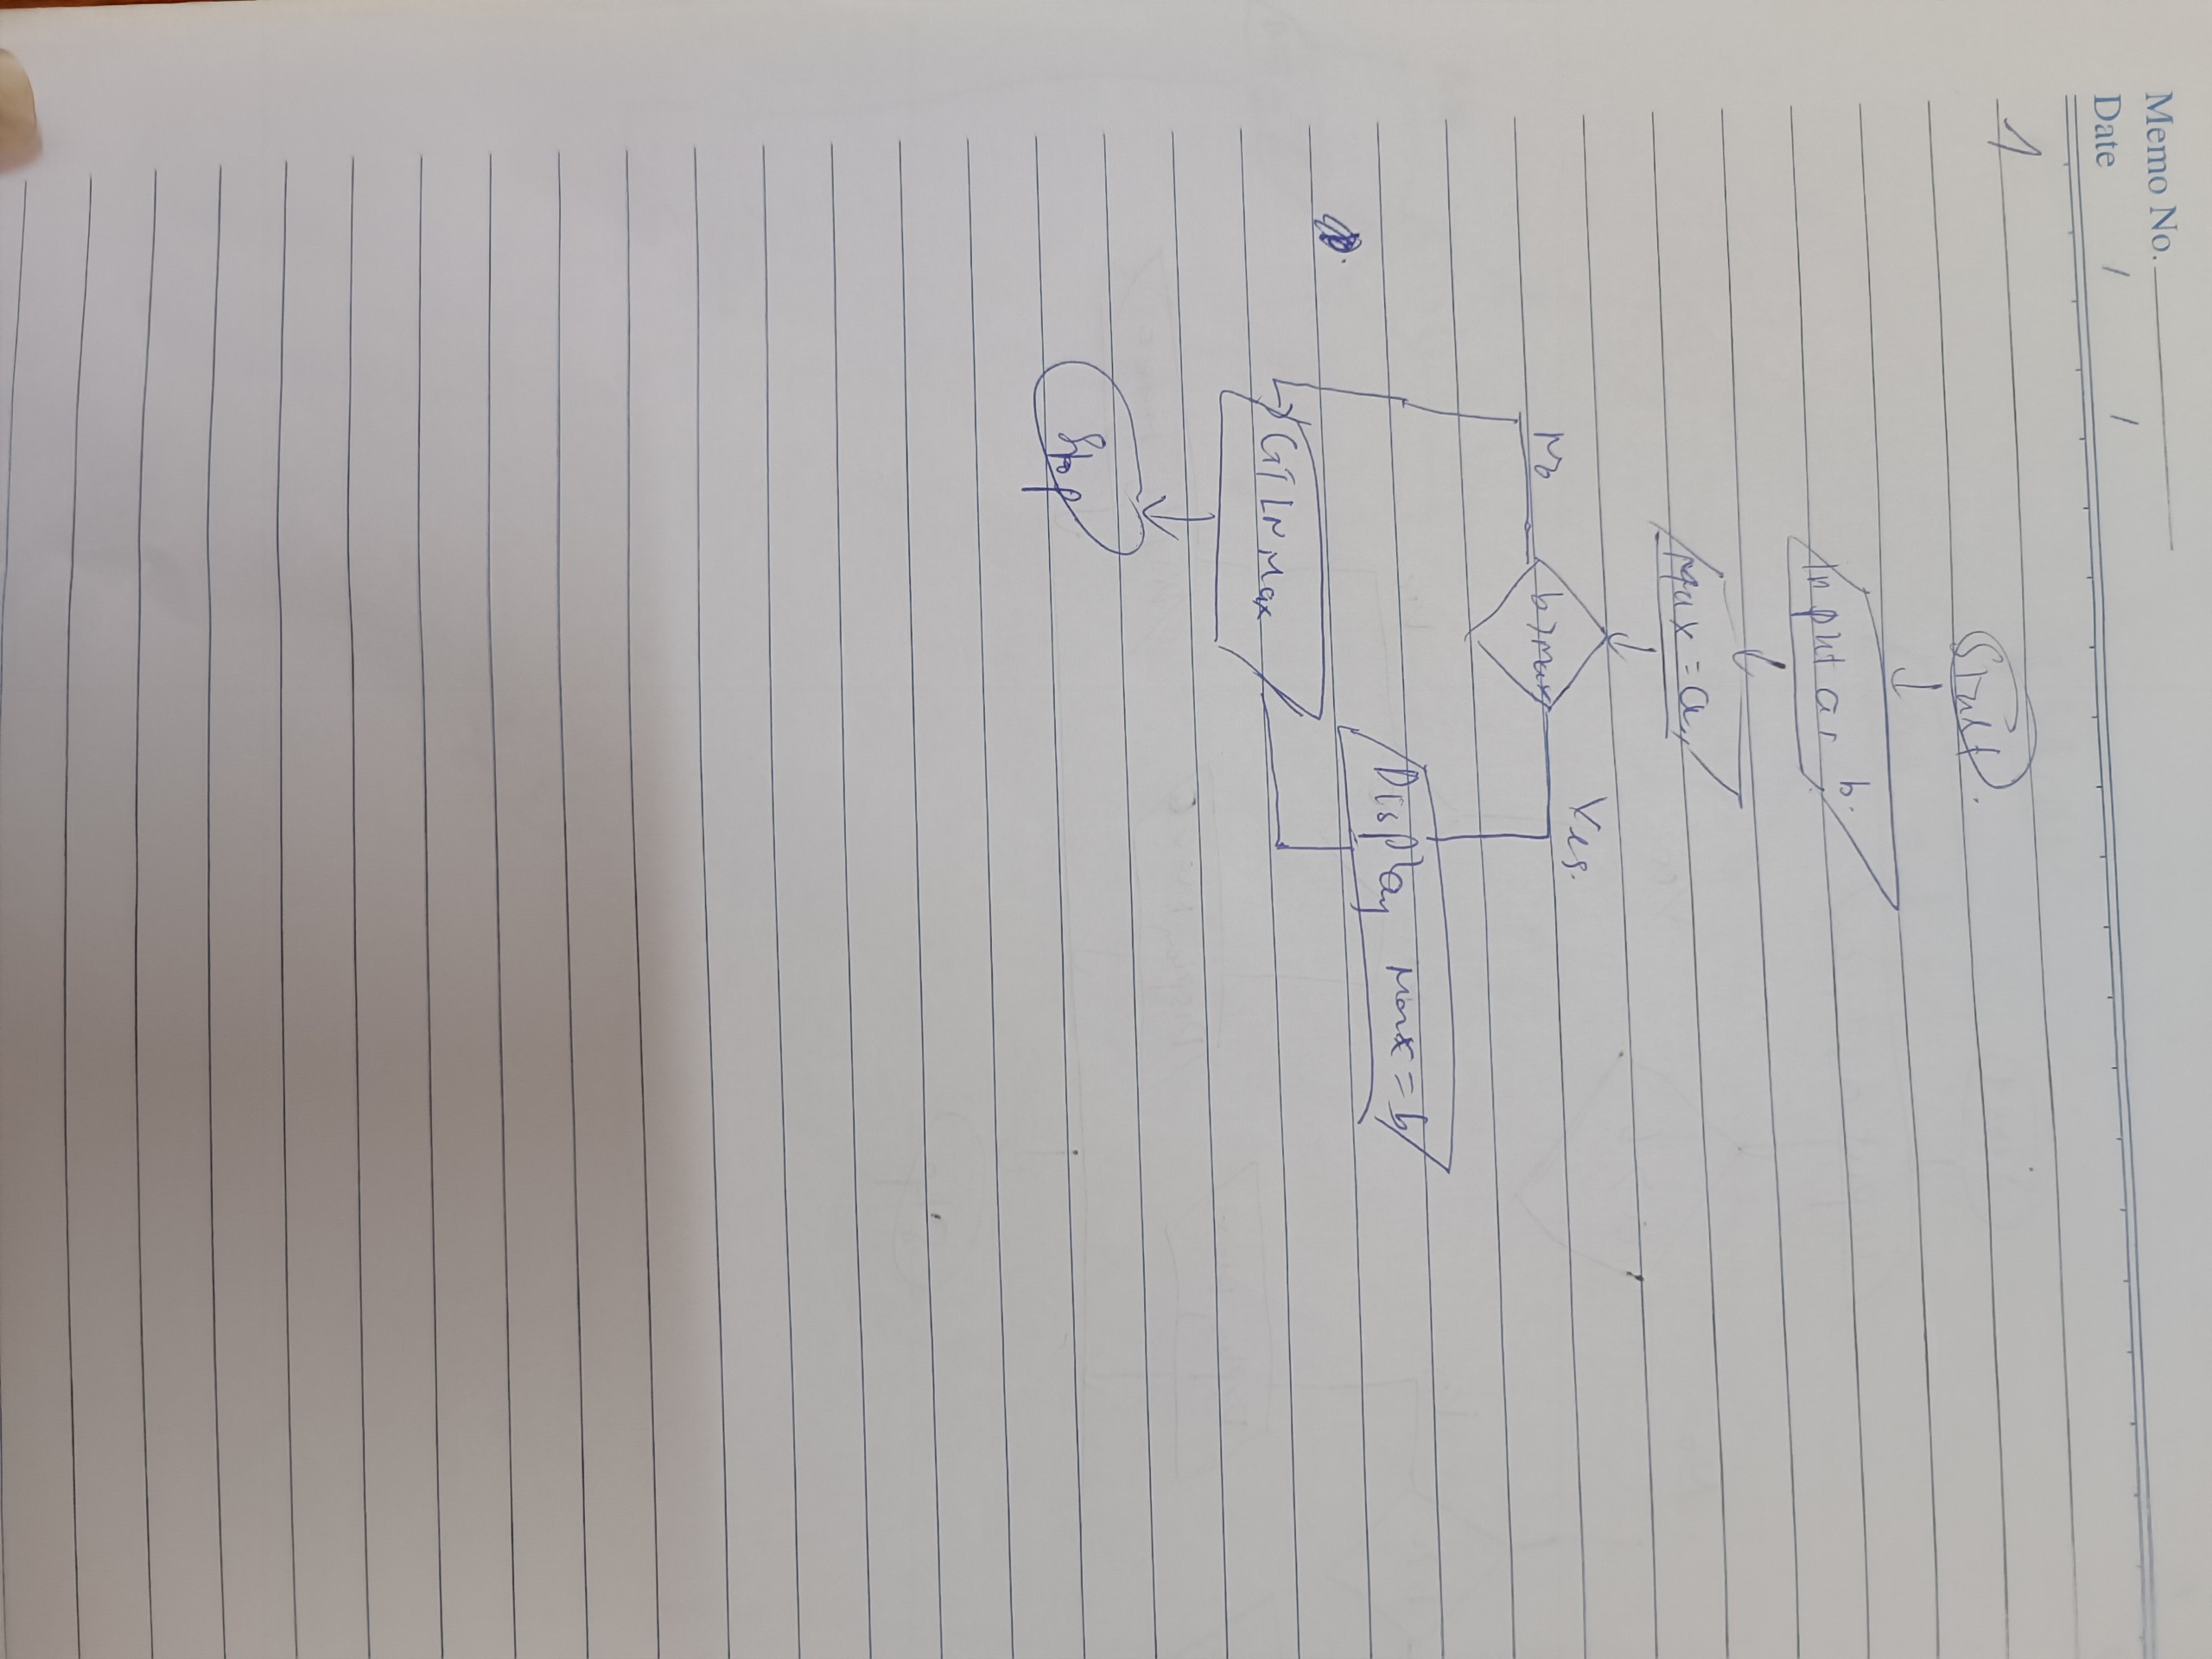 Memo No.
Date / /
1
Start.
Input a, b.
Max = a,
b > Max
No
Yes.
Display Max = b
Max
Stop